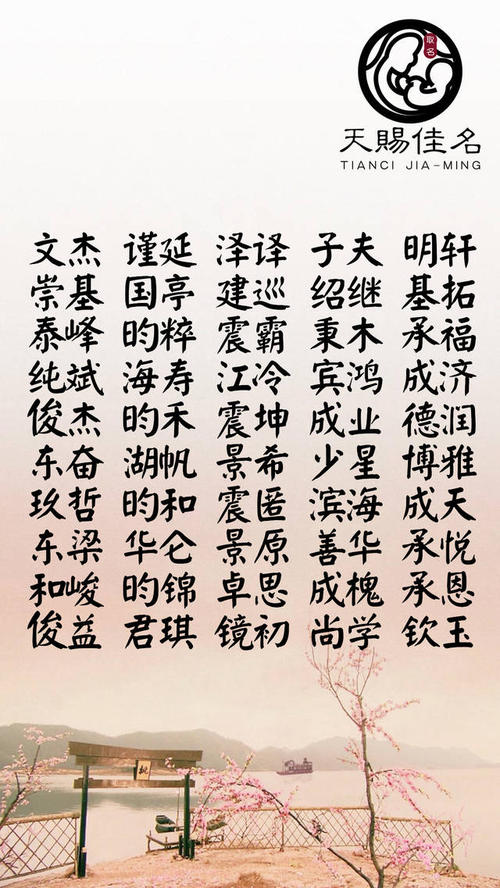 取名
天賜佳名
TIANCI JIA-MING
文杰 谨延 泽译 子夫 明轩
崇基 国亭 建巡 绍继 基拓
泰峰 昀粹 震霸 秉木 承福
纯斌 海寿 江冷 宾鸿 成济
俊杰 昀禾 震坤 成业 德润
东奋 湖帆 景希 少星 博雅
玖哲 昀和 震匿 滨海 成天
东梁 华仑 景原 善华 承悦
和峻 昀锦 卓思 成槐 承恩
俊益 君琪 镜初 尚学 钦玉